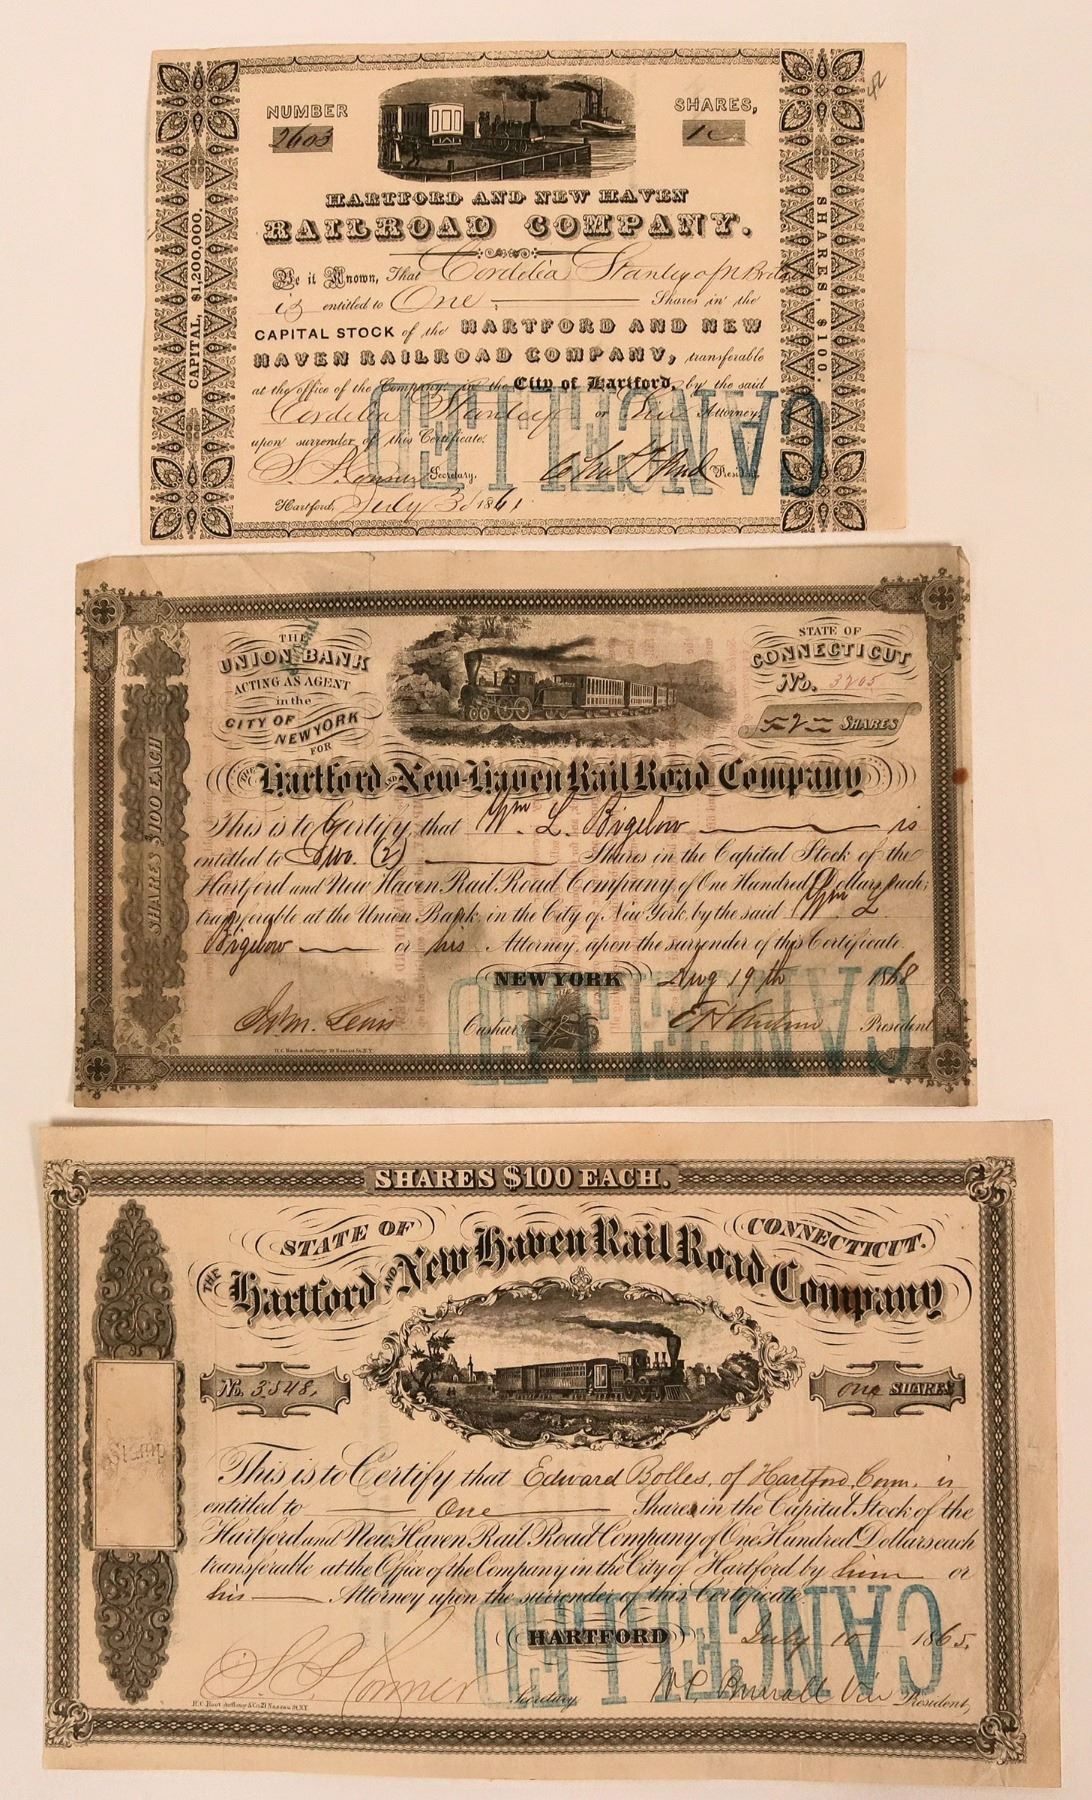 42
NUMBER
2603
SHARES,
1
CAPITAL, $1,200,000.
SHARES, $100.
HARTFORD AND NEW HAVEN
RAILROAD COMPANY.
Be it Known, That Cordelia Stanley of N Britain
is entitled to One Shares in the
CAPITAL STOCK of the HARTFORD AND NEW
HAVEN RAILROAD COMPANY, transferable
at the office of the Company in the City of Hartford, by the said
Cordelia Stanley or her Attorney
upon surrender of this Certificate.
Secretary. President.
Hartford, July 3d 1861
CANCELLED
THE
UNION BANK
ACTING AS AGENT
in the
CITY OF
NEW YORK
FOR
STATE OF
CONNECTICUT
No. 3205
2 SHARES
SHARES $100 EACH
THE Hartford AND New-Haven Rail Road Company
This is to Certify, that Wm L. Bigelow is
entitled to Two (2) Shares in the Capital Stock of the
Hartford and New Haven Rail Road Company of One Hundred Dollars each;
transferable at the Union Bank, in the City of New York, by the said Wm L
Bigelow or his Attorney, upon the surrender of this Certificate.
NEW YORK Aug 19th 1868
Cashier President
CANCELLED
SHARES $100 EACH.
STATE OF CONNECTICUT.
THE Hartford AND New Haven Rail Road Company
No. 3548.
one SHARES
Stamp
This is to Certify that Edward Bolles, of Hartford, Conn. is
entitled to One Shares in the Capital Stock of the
Hartford and New Haven Rail Road Company of One Hundred Dollars each
transferable at the Office of the Company in the City of Hartford by him or
his Attorney upon the surrender of this Certificate.
HARTFORD July 10 1865.
Secretary, Vice President,
CANCELLED